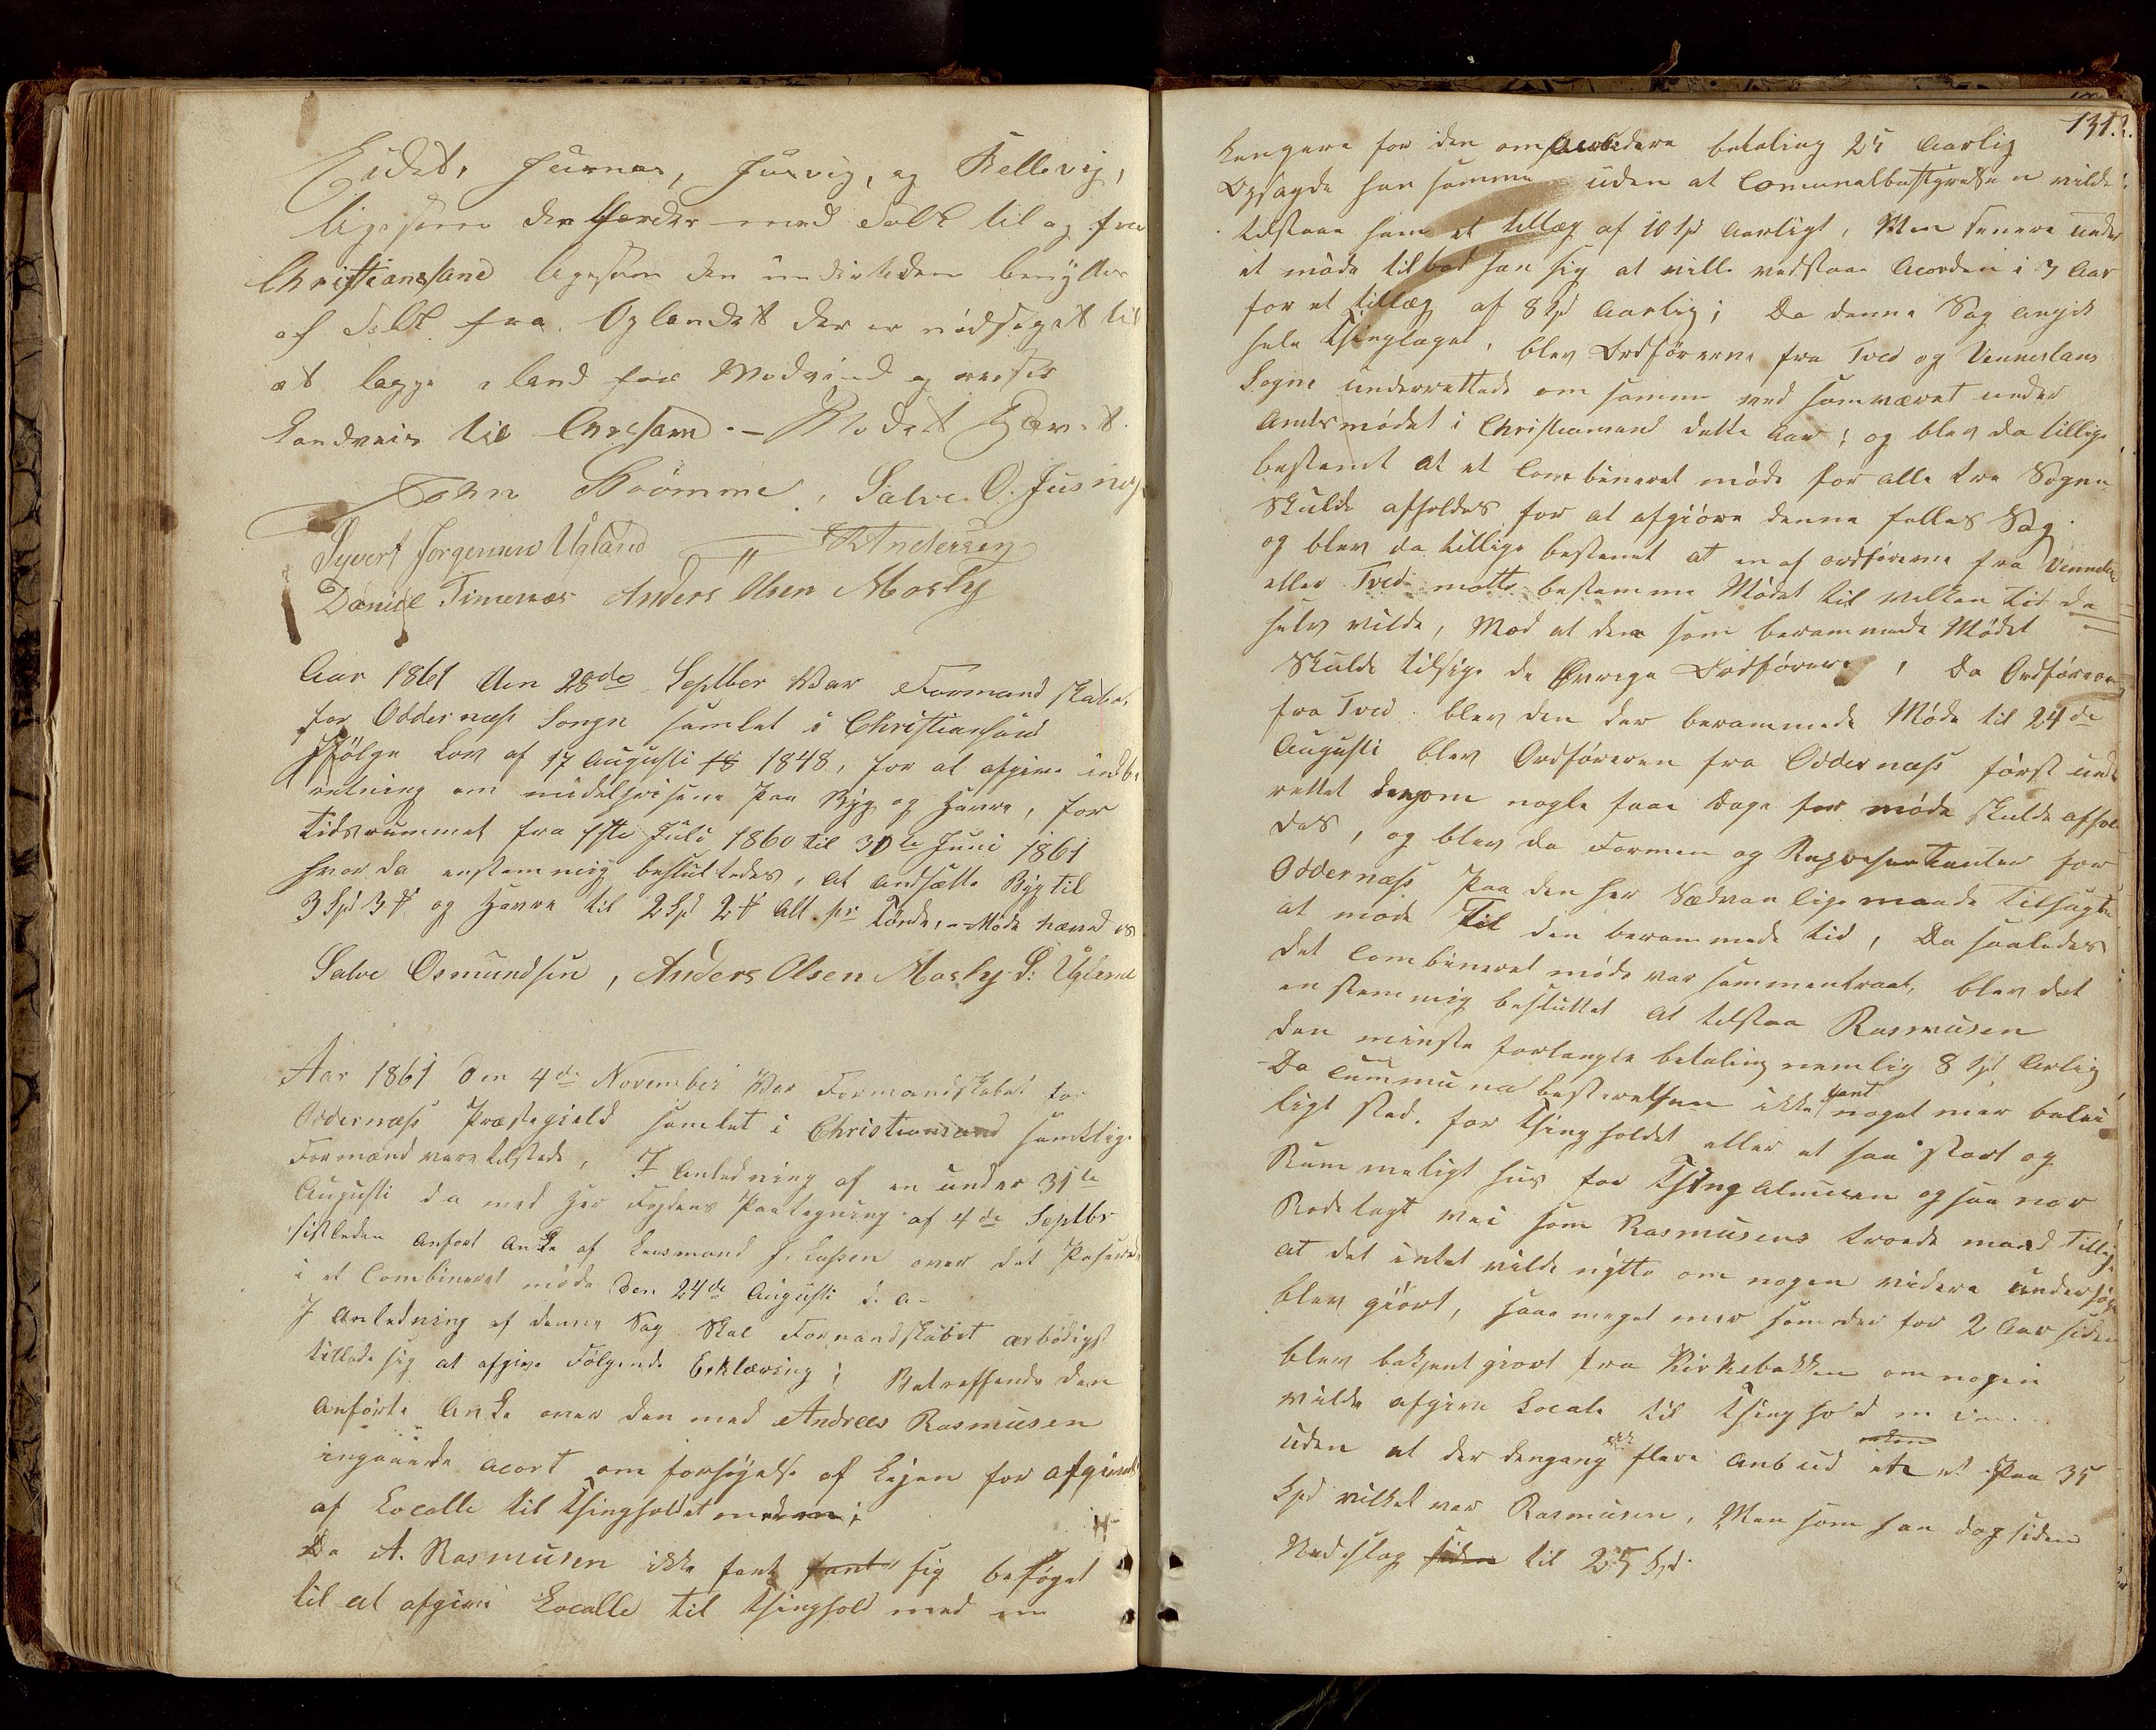 Eidet, Justnes, Justvig, og Bellevig,
ligesom der færdes med Folk til og fra
Christianssand ligesom den undertiden benyttes
af Folk fra Oplandet der er nødsaget til
at lægge i land for Modvind og reiser
Landveis til Chrsand. – Mødet Hævet.
John Strömme, Salve O. Jusnes
Syvert Jørgensen Ugland
Andersen
Daniel Timenes Anders Olsen Mosby
Aar 1861 den 28de Septber Var Formandskabet
for Oddernæss Songn samlet i Christiansand
Ifölge Lov af 17 Augusti 18 1848, for at afgive indbe
retning om midelprisene paa Byg og Havre, for
tidsrummet fra 1ste Juli 1860 til 30te Juni 1861
hvor da enstemmig besluttedes, at andsætte Byg til
3 Spd 3 # og Havre til 2 Spd 2 # Alt pr Tønde, – Møde hævedes
Salve Osmundsen, Anders Olsen Mosby S: Ugland
Aar 1861 den 4de November Var Formandskabet for
Oddernæss Præstegield samlet i Christiansand samtlige
Formænd vare tilstæde, I Anledning af en under 31te
Augusti da med Her Fogdens Paategning af 4de Septbr
sistleden Anført Anke af Lensmand J. over det Paserede
i et Combineret møde den 24de Augusti d. a –
I Anledning af denne Sag skal Formandskabet ærbødigst
tillade sig at afgive Følgende Erklæring; Betreffende den
anførte Anke over den med Andreas Rasmusen
ingaaede acort om forhøyelse af Lejen for afgivelse
af Localle til Thingholdet
Da A. Rasmusen ikke fant fant sig beføget
til at afgive Localle til Thinghold med en
131
Lengere for den omacordere betaling 25 aarlig
Opsagde han samme uden at Comunalbestyrelsen vilde
tilstaae ham et tillæg af 10 Spd aarligt, Men senere under
et møde tilbød han sig at ville vedstaae Acorden i 3 Aar
for et tillæg af 8 Spd aarlig; Da denne Sag angik
hele Thinglaget, blev Ordførerne fra Tved og Venneslands
Sogne underrettede om samme ved samværet under
Amtsmødet i Christiansand dette Aar; og blev da tillige
bestemt at et Combineret møde for alle tre Sogne
skulde afholdes for at afgiøre denne felles Sag.
og blev da tillige bestemt at en af ordførerne fra Vennesla
eller Tved motte bestemme Mødet til velken tid de
selv vilde, Mod at den som berammede Mødet
skulde tilsige de Øvrige Ordførere, Da Ordføreren
fra Tved blev den der berammede Møde til 24de
Augusti blev Ordføreren fra Oddernæss først under
rettet derom nogle faae Dage før møde skulde afhol
des, og blev da Formen og Representanter for
Oddernæss paa den her Sædvanlige maade tilsagte
at møde Til den berammede tid, Da saaledes
det Combineret møde var sammentraat, blev det
enstemmig besluttet at tilstaa Rasmusen
den minste forlangte betaling nemlig 8 Spd Arlig
Da Cummunalbesterelsen ikke fant noget mer belei
ligt sted for Thingholdet eller et saa stort og
Rummeligt hus for Thingalmuen og saa nær
Rodelagt vei som Rasmusens troede mand tillige
at det intet vilde nytte om nogen videre undersøgelse
blev giørt, saa meget mer som der for 2 Aar siden
blev bekjent giort fra Kirkebakken om nogen
vilde afgive Locale til Thinghold
uden at der dengang flere Anbud et paa 35
Spd vilket var Rasmusen, Men som han dog siden
Nedslog siden til 25 Spd.